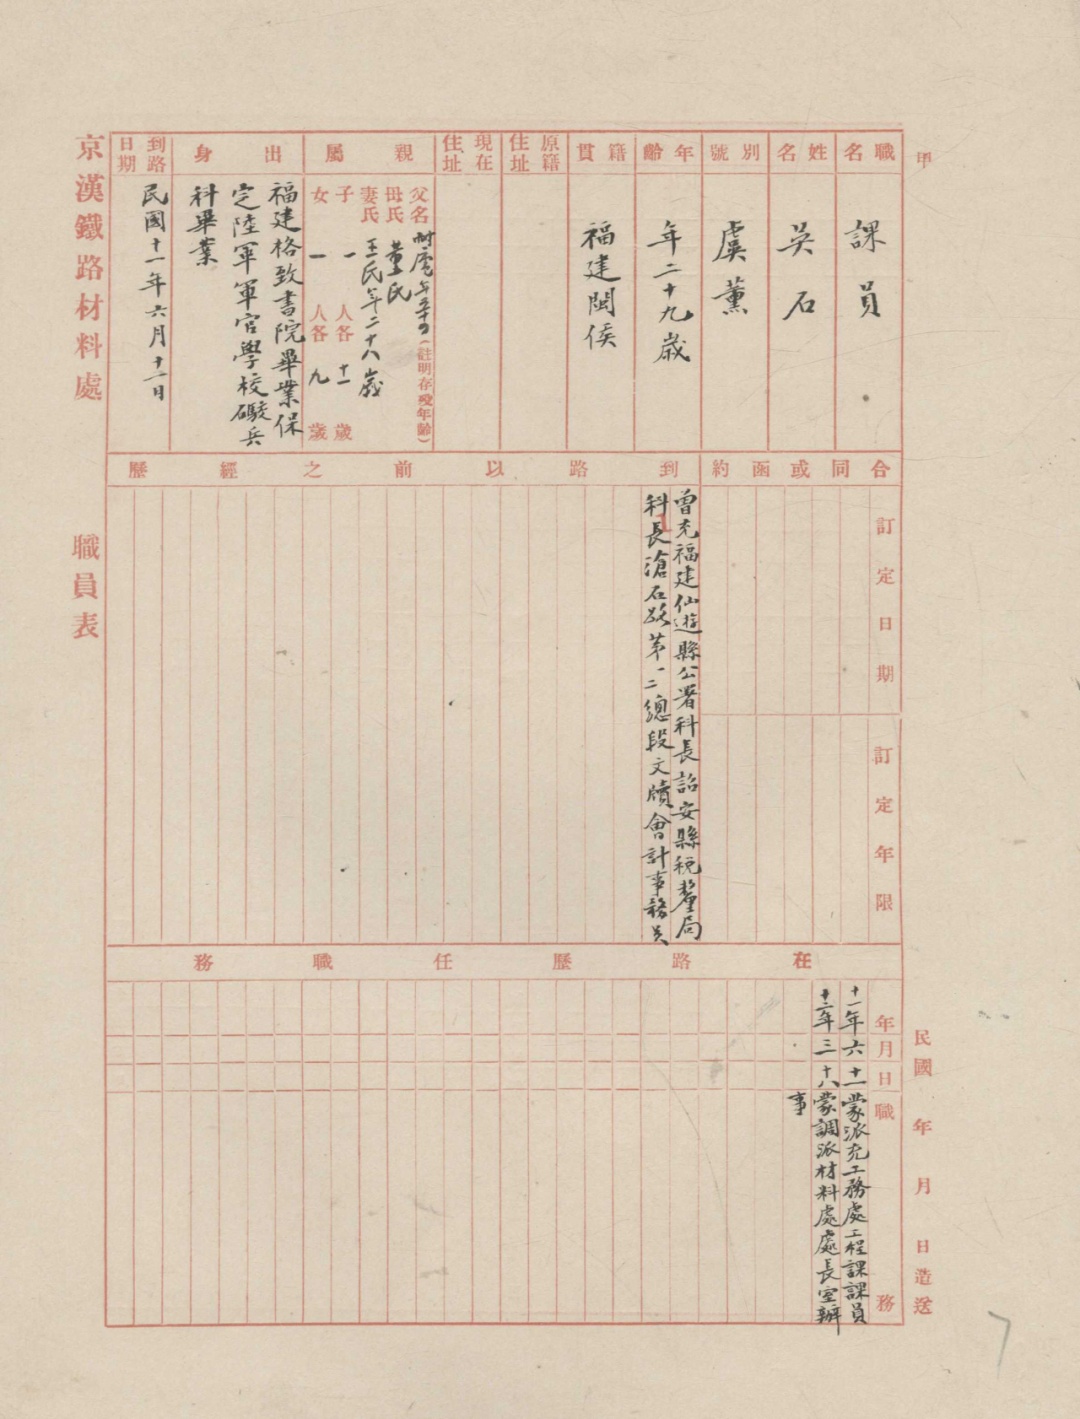 甲
職名
課員
姓名
吳石
別號
虞薰
年齡
年二十九歲
籍貫
福建閩侯
原籍住址
現在住址
親屬
父名 年五十四(註明存歿年齡)
母氏 董氏
妻氏 王氏年二十八歲
子 一 人各 十一 歲
女 一 人各 九 歲
出身
福建格致書院畢業保
定陸軍軍官學校礮兵
科畢業
到路日期
民國十一年六月十二日
京漢鐵路材料處 職員表
合同或函約
訂定日期
訂定年限
到路以前之經歷
曾充福建仙遊縣公署科長詔安縣稅釐局
科長滄石路第一二總段文牘會計事務員
在路歷任職務
年月日 職務
十一年六十一蒙派充工務處工程課課員
十二年三十八蒙調派材料處處長室辦
事
民國 年 月 日造送
7